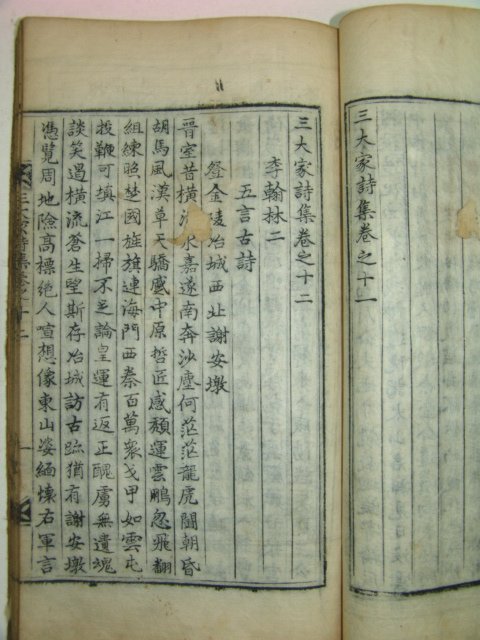 三大家詩集卷之十一
三大家詩集卷之十二
李翰林二
五言古詩
登金陵冶城西北謝安墩
晉室昔橫永嘉遂南奔沙塵何茫茫龍虎鬪朝昏
胡馬風漢草天驕蹙中原哲匠感頹運雲鵬忽飛翻
組練照楚國旌旗連海門西秦百萬衆戈甲如雲屯
投鞭可塡江一掃不足論皇運有返正醜虜無遺魂
談笑遏橫流蒼生望斯存冶城訪古跡猶有謝安墩
憑覽周地險高標絶人喧想像東山姿緬懷右軍言
三大家詩集卷之十二 一